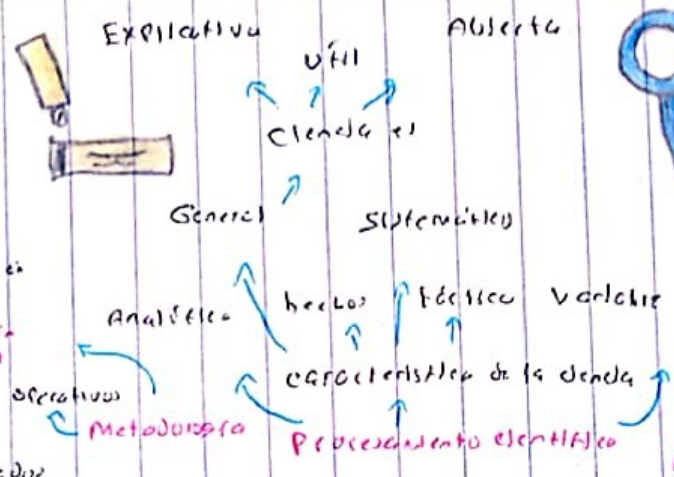 Explicativa Abierta
útil
Ciencia es
General Sistemático
Analítica hechos táctica Variable
operativos característica de la ciencia
Metodología Procesamiento científico